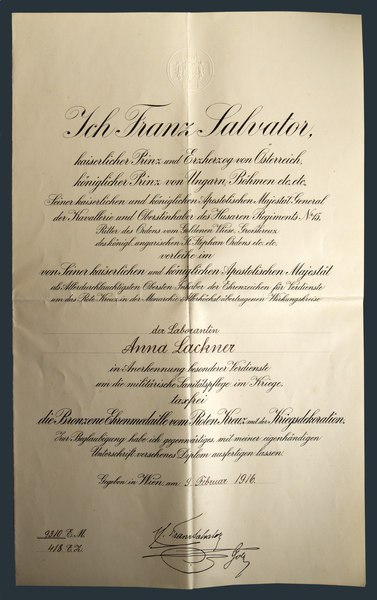 Ich Franz Salvator,
kaiserlicher Prinz und Erzherzog von Österreich,
königlicher Prinz von Ungarn, Böhmen etc. etc.
Seiner kaiserlichen und königlichen Apostolischen Majestät General
der Kavallerie und Oberstinhaber des Husaren Regiments No 15,
Ritter des Ordens vom Goldenen Vliese, Grosskreuz
des königl. ungarischen St. Stephan Ordens etc. etc.
verleihe im
von Seiner kaiserlichen und königlichen Apostolischen Majestät
als Allerdurchlauchtigsten Obersten Inhaber der Ehrenzeichen für Verdienste
um das Rote Kreuz in der Monarchie Allerhöchst übertragenen Wirkungskreise
der Laborantin
Anna Lackner
in Anerkennung besonderer Verdienste
um die militärische Sanitätspflege im Kriege,
taxfrei
die Bronzene Ehrenmedaille vom Roten Kreuz mit der Kriegsdekoration.
Zur Beglaubigung habe ich gegenwärtiges, mit meiner eigenhändigen
Unterschrift versehenes Diplom ausfertigen lassen.
Gegeben in Wien, am 9. Februar 1916.
9310 E.M.
418 E.K.